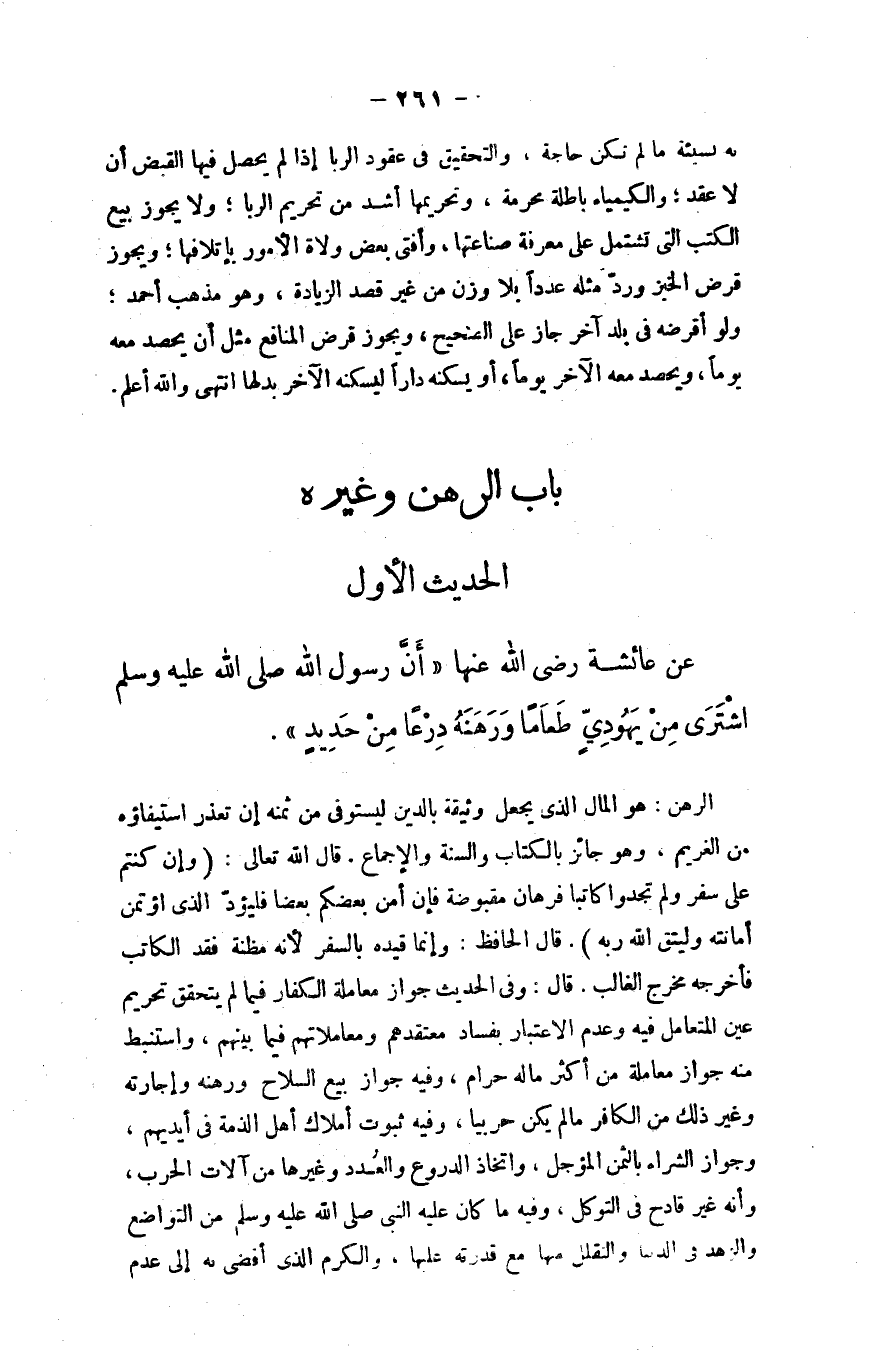 — ٢٦١ —
به نسيئة ما لم تكن حاجة ، والتحقيق فى عقود الربا إذا لم يحصل فيها القبض أن
لا عقد ؛ والكيمياء باطلة محرمة ، وتحريمها أشد من تحريم الربا ؛ ولا يجوز بيع
الكتب التى تشتمل على معرفة صناعتها ، وأفتى بعض ولاة الأمور بإتلافها ؛ ويجوز
قرض الخبز وردّ مثله عدداً بلا وزن من غير قصد الزيادة ، وهو مذهب أحمد ؛
ولو أقرضه فى بلد آخر جاز على الصحيح ، ويجوز قرض المنافع مثل أن يحصد معه
يوماً ، ويحصد معه الآخر يوماً ، أو يسكنه داراً ليسكنه الآخر بدلها انتهى والله أعلم .
باب الرهن وغيره
الحديث الأول
عن عائشة رضى الله عنها « أَنَّ رسول الله صلى الله عليه وسلم
اشْتَرَى مِنْ يَهُودِيّ طَعَامًا وَرَهَنَهُ دِرْعًا مِنْ حَدِيدٍ » .
الرهن : هو المال الذى يجعل وثيقة بالدين ليستوفى من ثمنه إن تعذر استيفاؤه
من الغريم ، وهو جائز بالكتاب والسنة والإجماع . قال الله تعالى : ( وإن كنتم
على سفر ولم تجدوا كاتبا فرهان مقبوضة فإن أمن بعضكم بعضا فليؤدّ الذى اؤتمن
أمانته وليتق الله ربه ) . قال الحافظ : وإنما قيده بالسفر لأنه مظنة فقد الكاتب
فأخرجه مخرج الغالب . قال : وفى الحديث جواز معاملة الكفار فيما لم يتحقق تحريم
عين المتعامل فيه وعدم الاعتبار بفساد معتقدهم ومعاملاتهم فيما بينهم ، واستنبط
منه جواز معاملة من أكثر ماله حرام ، وفيه جواز بيع السلاح ورهنه وإجارته
وغير ذلك من الكافر مالم يكن حربيا ، وفيه ثبوت أملاك أهل الذمة فى أيديهم ،
وجواز الشراء بالثمن المؤجل ، واتخاذ الدروع والعُدد وغيرها من آلات الحرب ،
وأنه غير قادح فى التوكل ، وفيه ما كان عليه النبى صلى الله عليه وسلم من التواضع
والزهد فى الدنيا والتقلل منها مع قدرته عليها ، والكرم الذى أفضى به إلى عدم